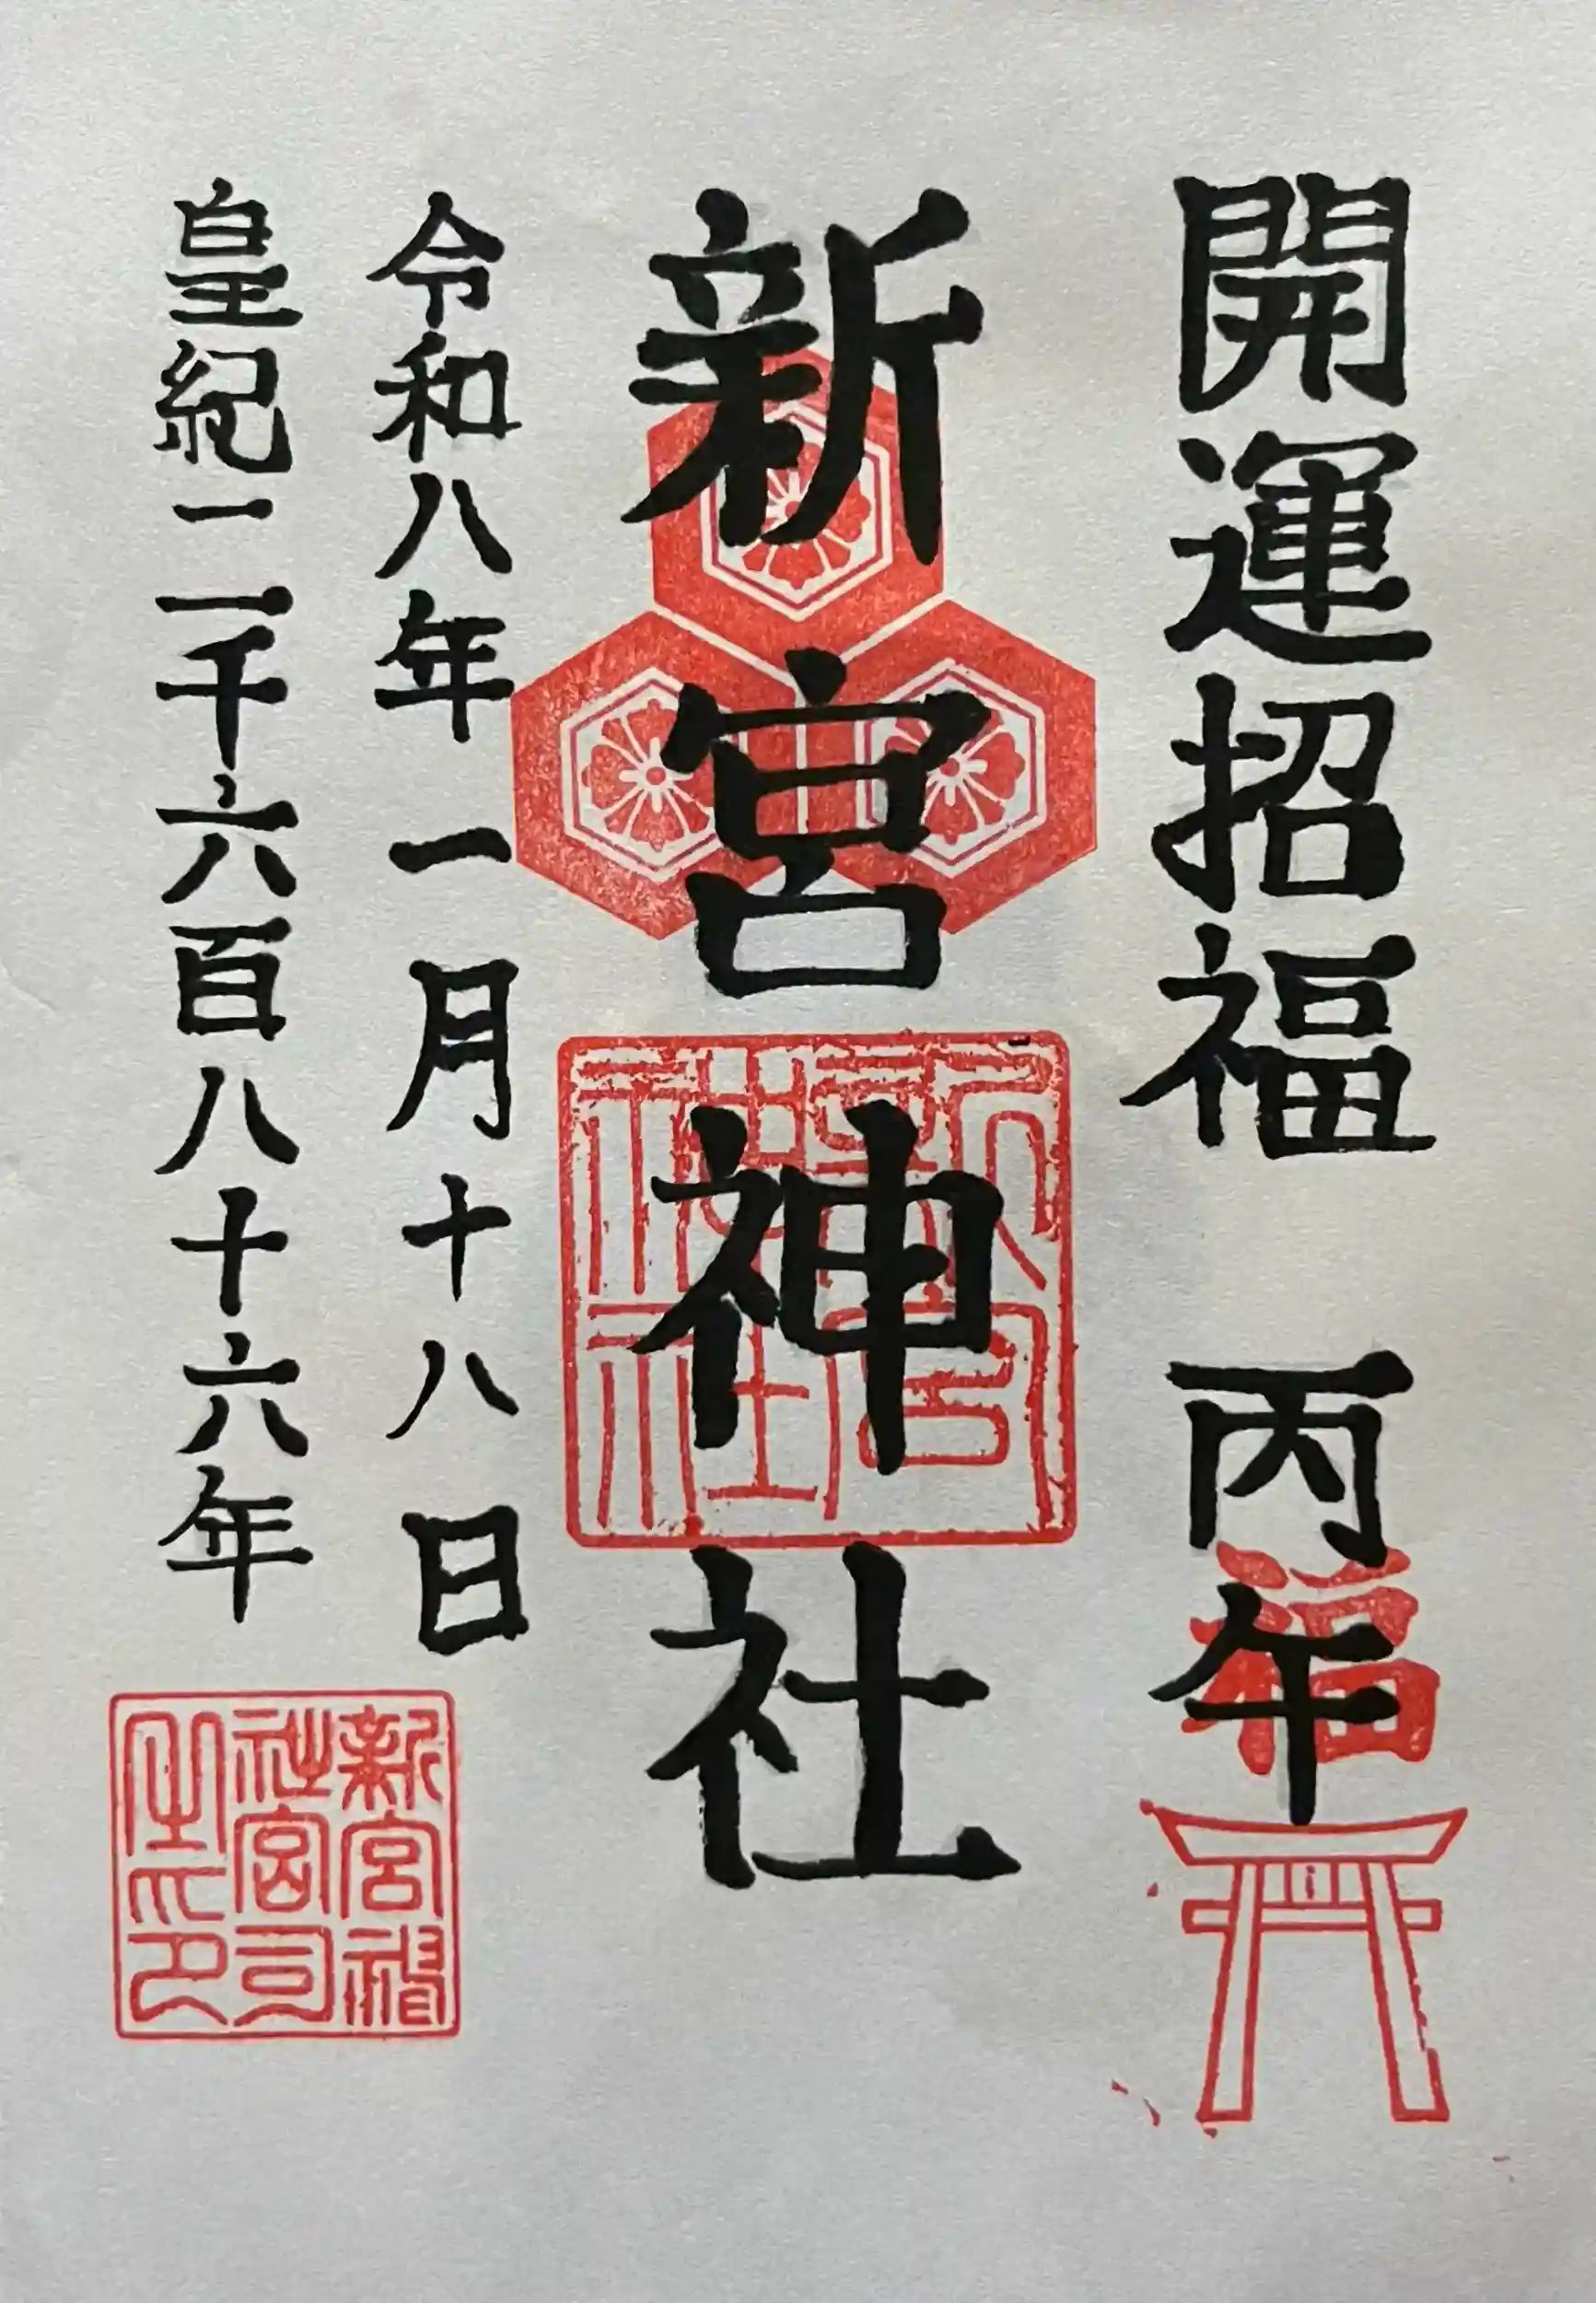 開運招福　丙午
福
新宮神社
新宮神社
令和八年一月十八日
皇紀二千六百八十六年
新宮神社宮司之印